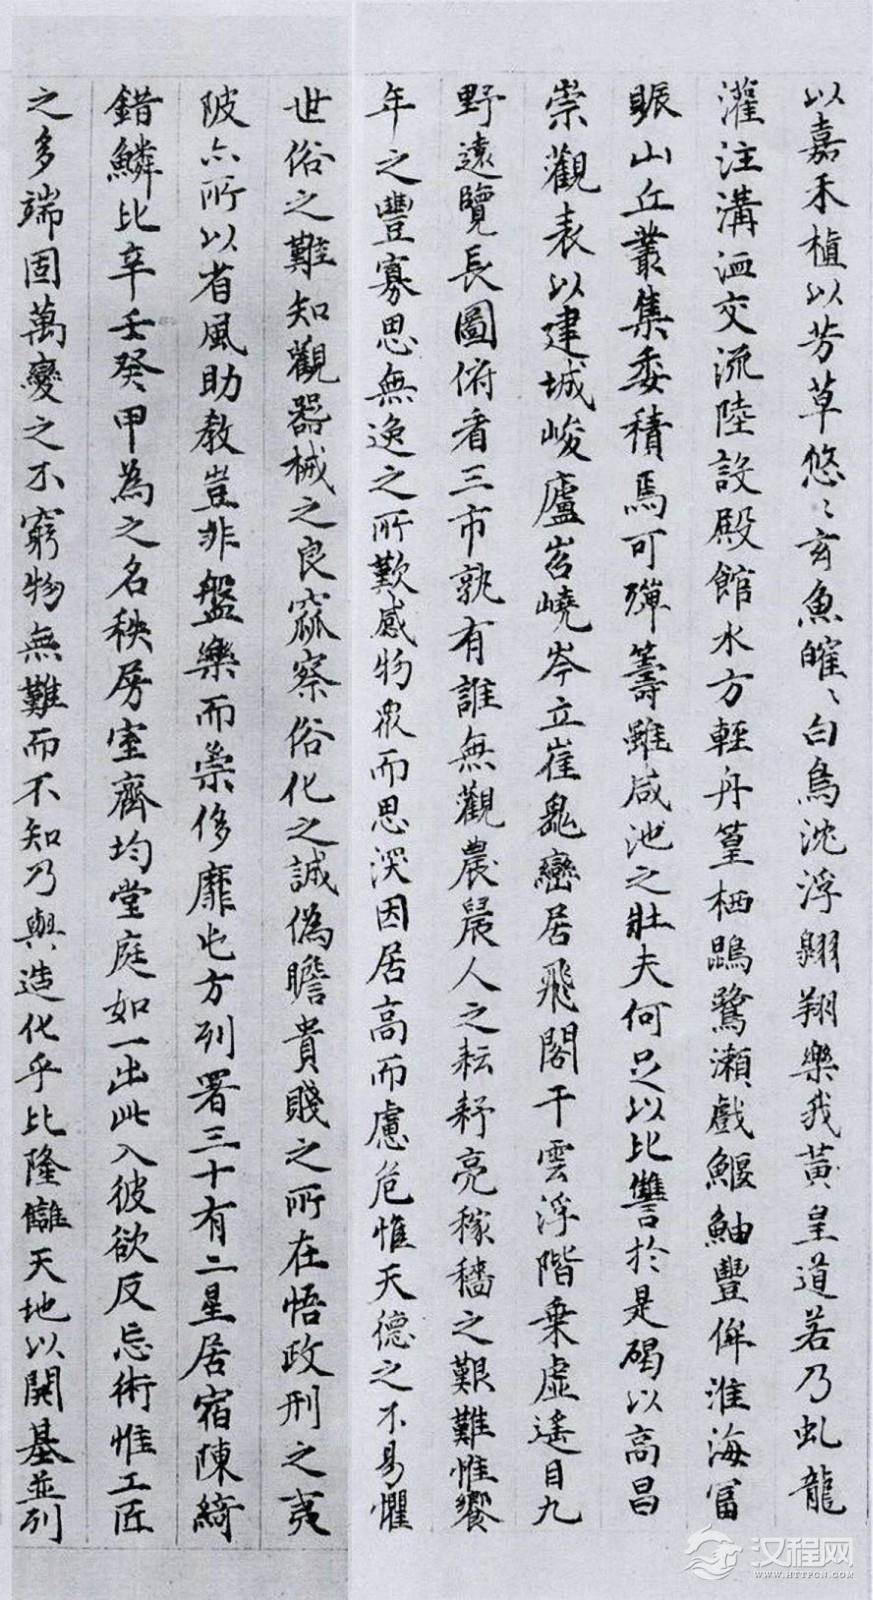 以嘉禾植以芳草悠〻玄魚皠〻白鳥沈浮翱翔樂我黃皇道若乃虬龍
灌注溝洫交流陸設殿館水方輕舟篁栖鵾鷺瀨戲鰋鮋豐侔淮海富
賑山丘叢集委積焉可殫籌雖咸池之壯夫何足以比讐於是碣以高昌
崇觀表以建城峻廬岧嶢岑立崔嵬巒居飛閣干雲浮階乘虛遙目九
野遠覽長圖俯看三市孰有誰無觀農人之耘耔亮稼穡之艱難惟饗
年之豐寡思無逸之所歎感物衆而思深因居高而慮危惟天德之不易懼
世俗之難知觀器械之良窳察俗化之誠偽瞻貴賤之所在悟政刑之夷
陂亦所以省風助教豈非盤樂而崇侈靡屯方列署三十有二星居宿陳綺
錯鱗比辛壬癸甲為之名秩房室齊均堂庭如一出此入彼欲反忘術惟工匠
之多端固萬變之不窮物無難而不知乃與造化乎比隆讎天地以開基並列
汉程网
WWW.HTTPCN.COM